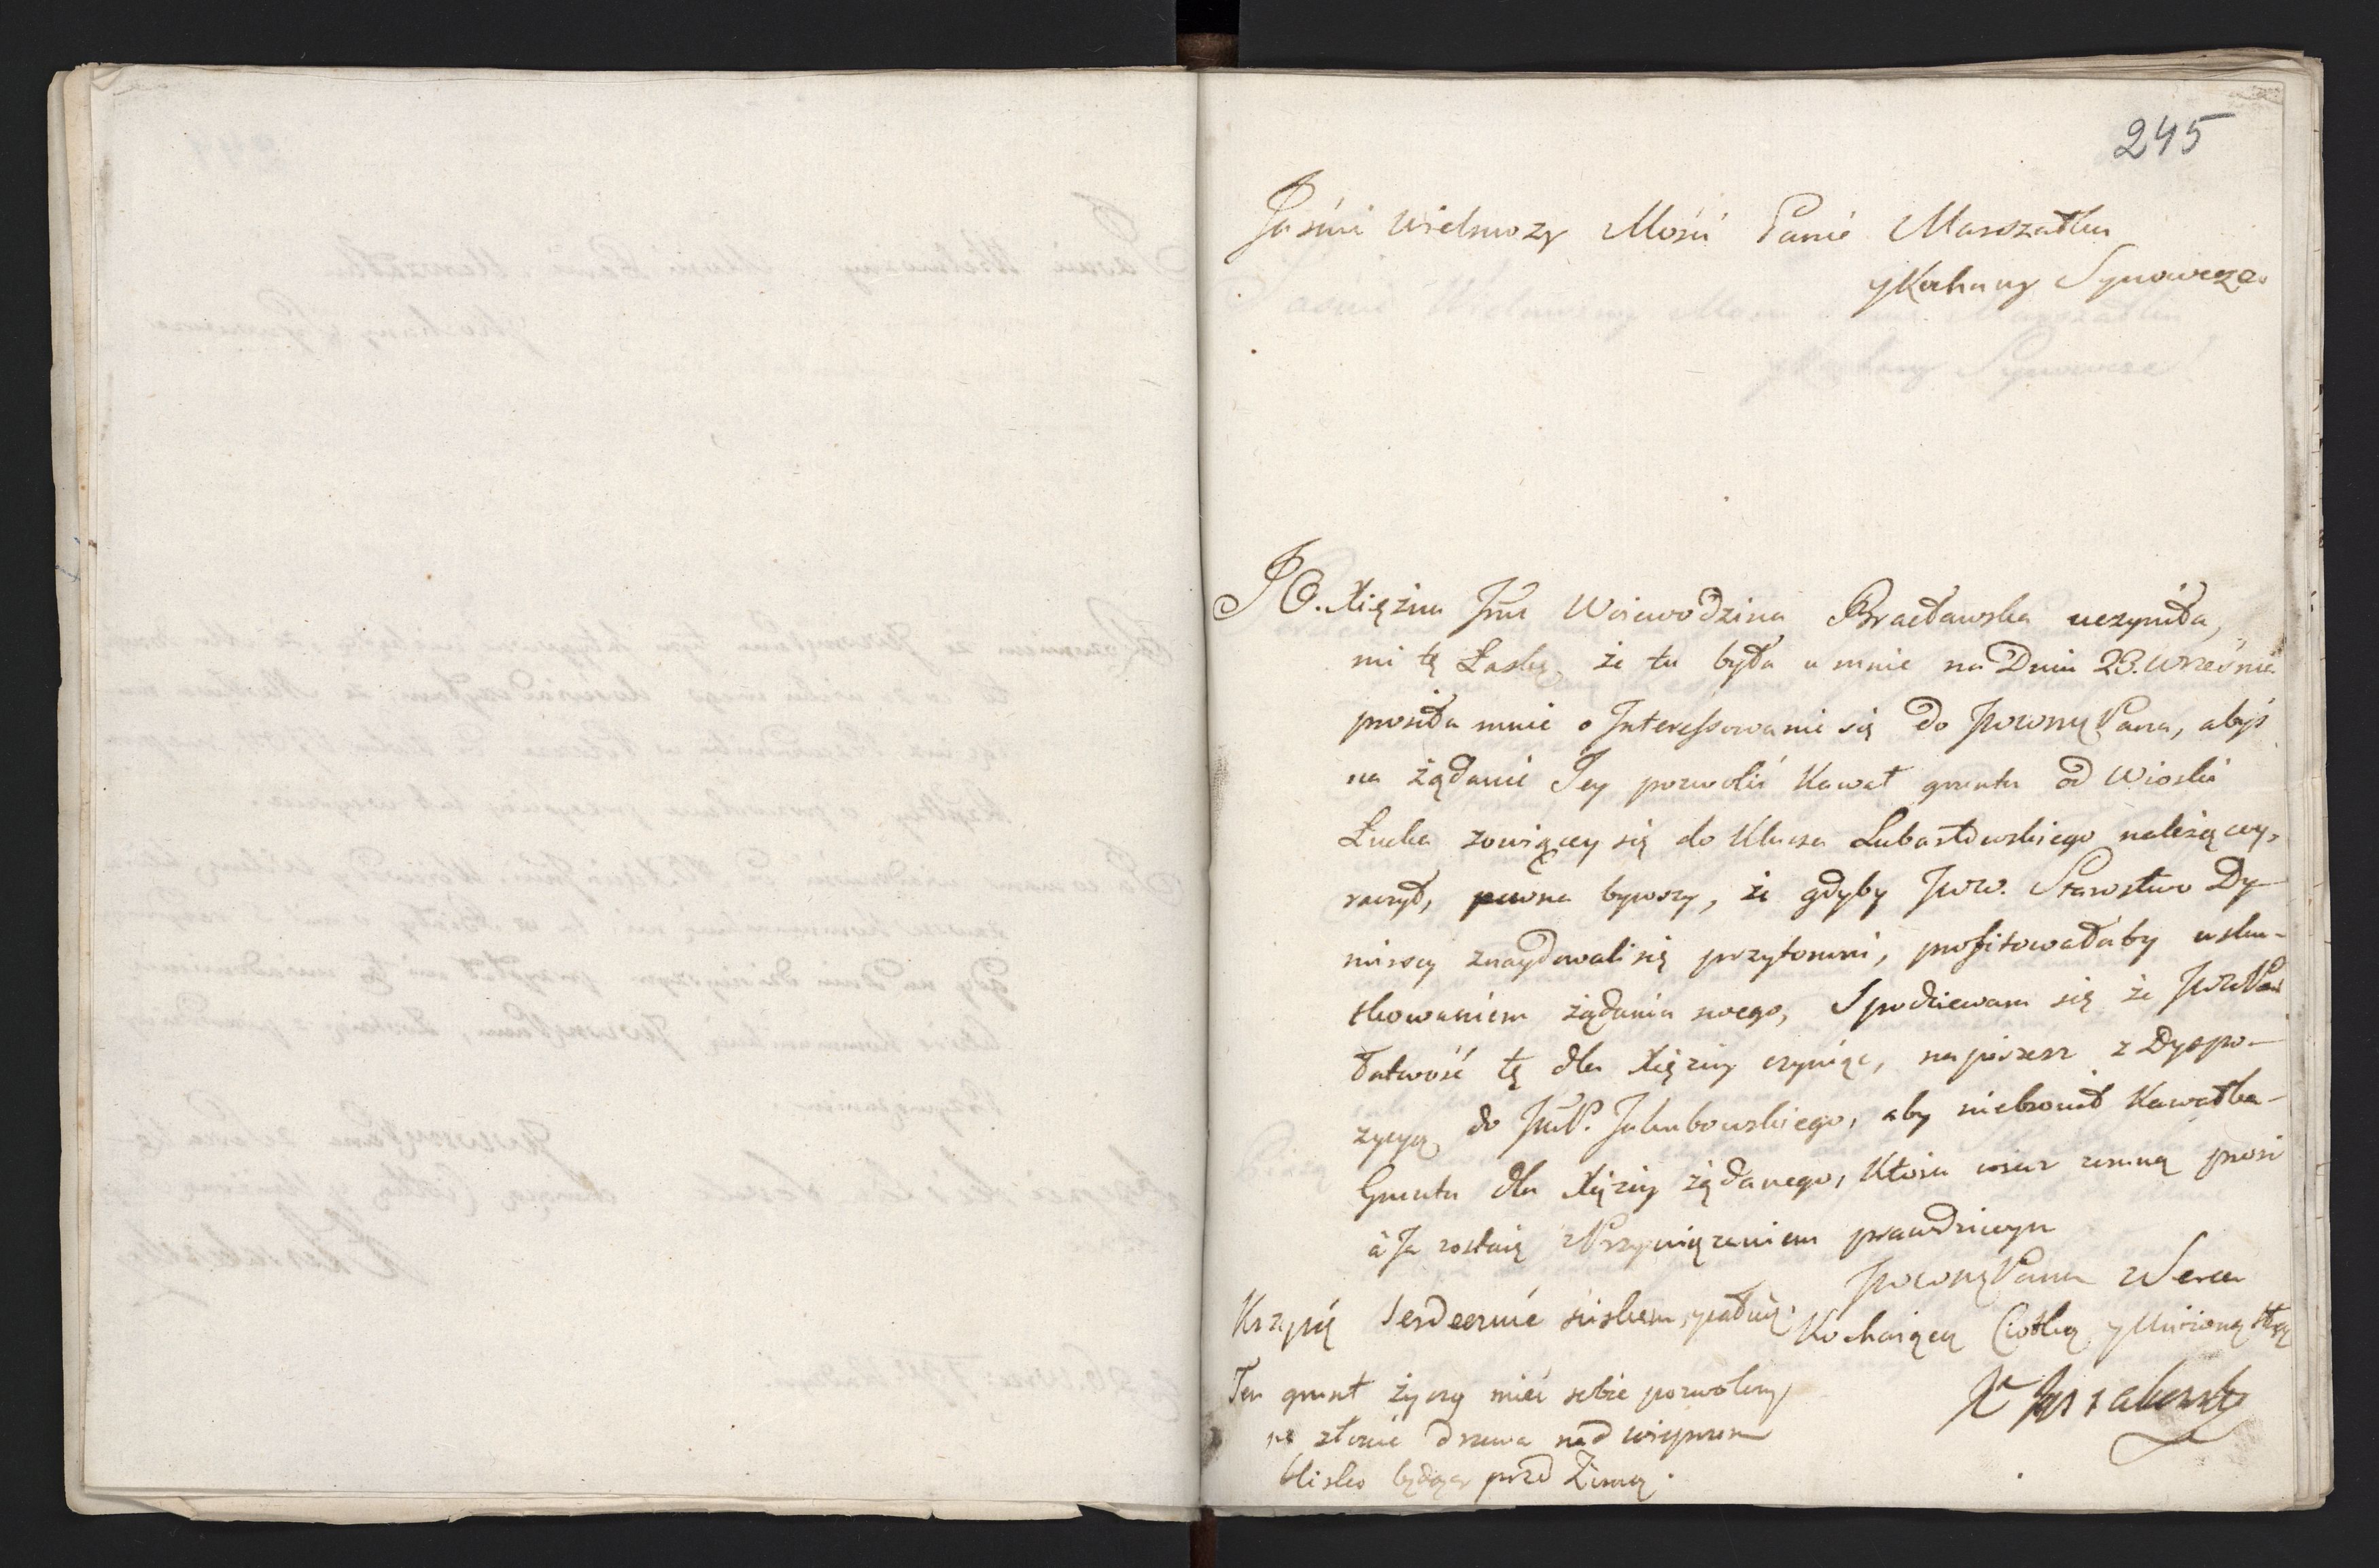 245
Jaśnie Wielmozy Mości Panie Marszałku
y Kochany Synowcze
JO. Xiężna Jmć Woiewodzina Bracławska uczyniła,
mi tę Łaskę, że tu była u mnie na Dniu 23. Wrześnie
prosiła mnie o Interessowanie się do JWWMPana, abyś
na żądanie Jey pozwolić Kawał gruntu od Wioski
Łucka zowiącey się do Klucza Lubartowskiego należącey,
raczył, pewna bywszy, że gdyby JWW. Starostwo Dy-
mirscy znaydowali się przytomni, profitowałaby usku-
tkowaniem żądania swego, Spodziewam się że JWWPan
Łatwość tę dla Xiężny czyniąc, napiszesz z Dyspo-
zycyą do JmP. Jakubowskiego, aby niebronił Kawałka
Gruntu dla Xiężny żądanego, Ktora wraz zemną prosi
à Ja zostaię z Przywiązaniem prawdziwym
JWWMPana z Serca
Kochaiącą Ciotką y Uniżoną Słgą
Krzysię Serdecznie sciskam,
Ten grunt życzy mieć sobie pozwolony
na złożenie drzewa nad wieprzem
blisko będąc przed Zimą.